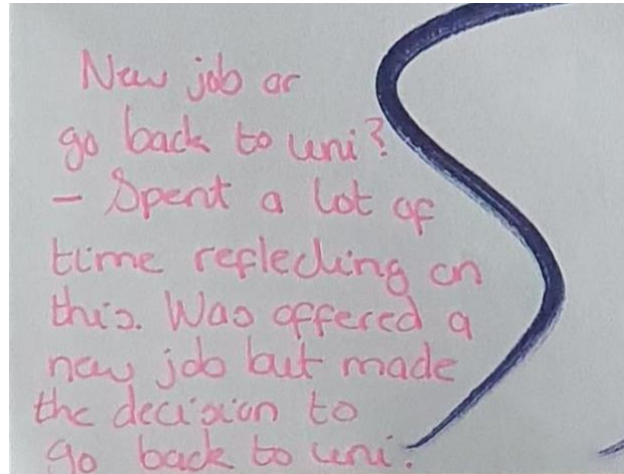 New job or
go back to uni?
- Spent a lot of
time reflecting on
this. Was offered a
new job but made
the decision to
go back to uni.